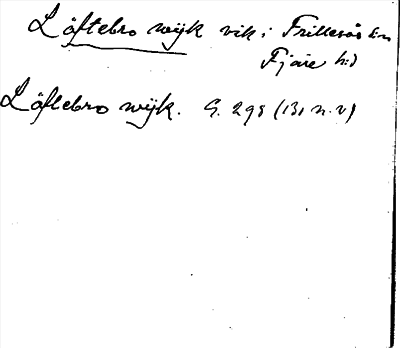 Löftebro wijk vik i Frillesås sn
Fjäre hd
Löftebro wijk. G. 298 (131 n. v)